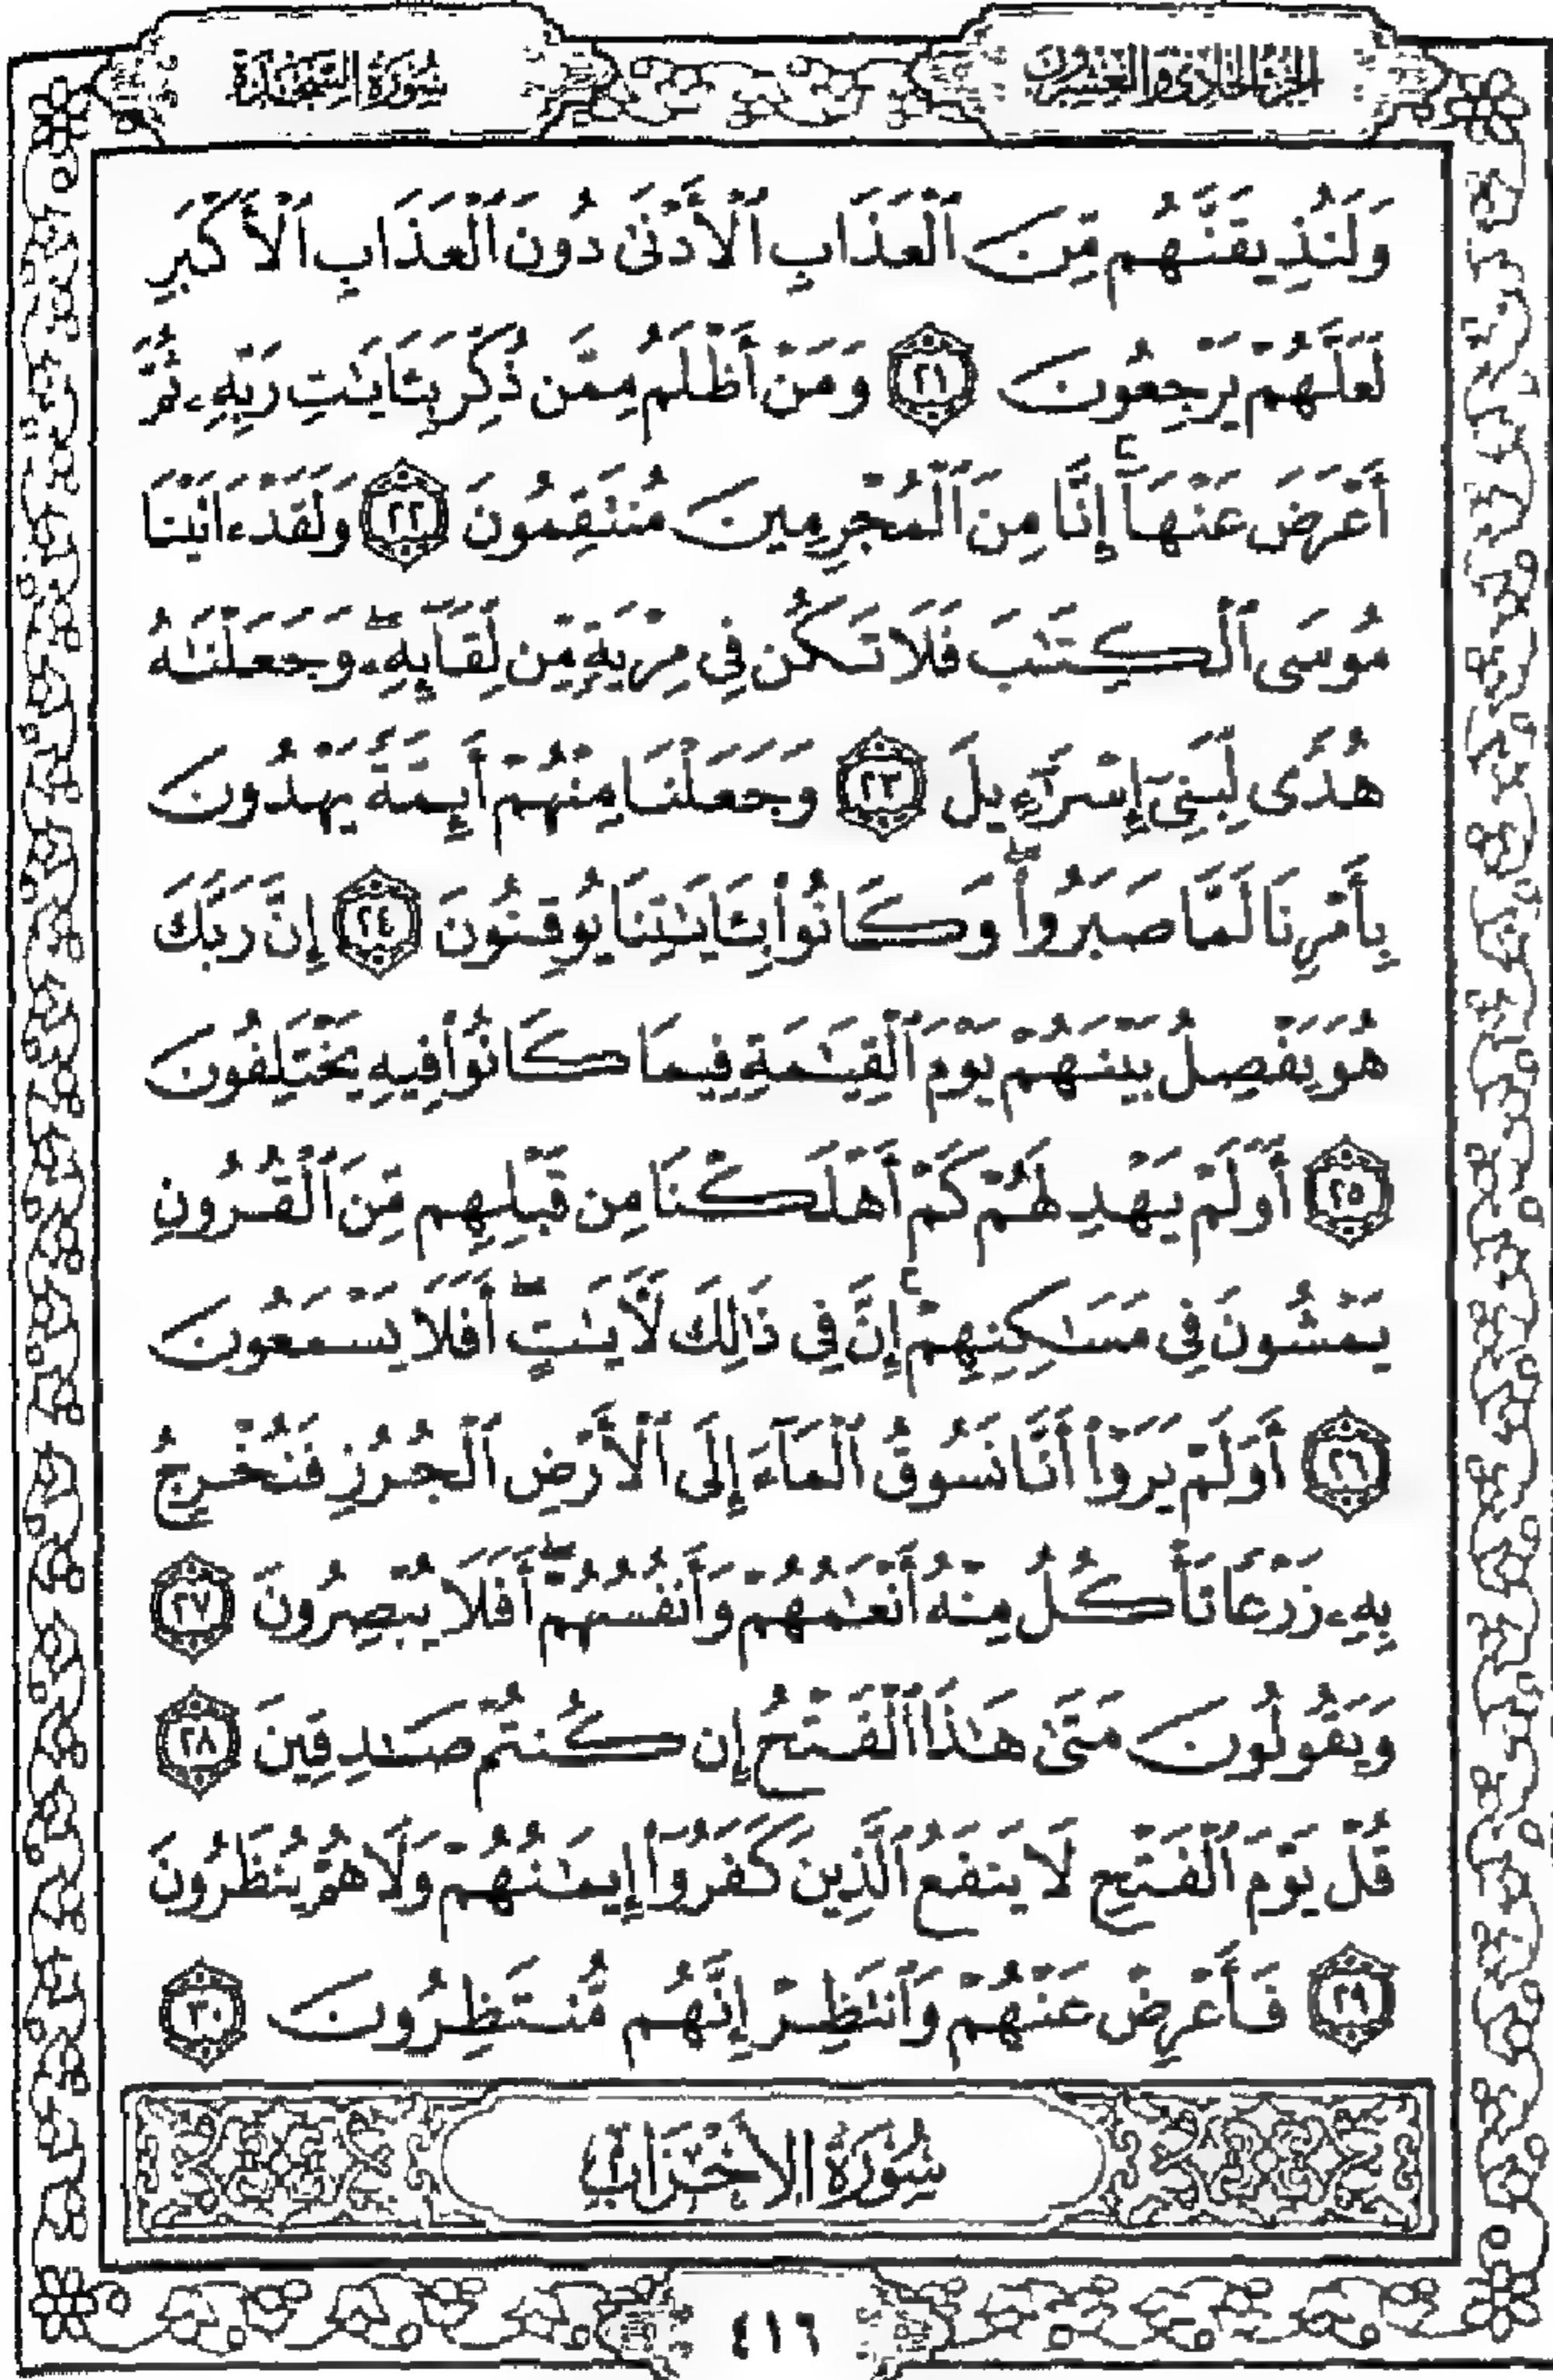 الجزء الحادي والعشرون
سورة السجدة
وَلَنُذِيقَنَّهُم مِّنَ ٱلْعَذَابِ ٱلْأَدْنَىٰ دُونَ ٱلْعَذَابِ ٱلْأَكْبَرِ
لَعَلَّهُمْ يَرْجِعُونَ ٢١ وَمَنْ أَظْلَمُ مِمَّن ذُكِّرَ بِـَٔايَـٰتِ رَبِّهِۦ ثُمَّ
أَعْرَضَ عَنْهَآ ۚ إِنَّا مِنَ ٱلْمُجْرِمِينَ مُنتَقِمُونَ ٢٢ وَلَقَدْ ءَاتَيْنَا
مُوسَى ٱلْكِتَـٰبَ فَلَا تَكُن فِى مِرْيَةٍ مِّن لِّقَآئِهِۦ ۖ وَجَعَلْنَـٰهُ
هُدًى لِّبَنِىٓ إِسْرَٰٓءِيلَ ٢٣ وَجَعَلْنَا مِنْهُمْ أَئِمَّةً يَهْدُونَ
بِأَمْرِنَا لَمَّا صَبَرُوا۟ ۖ وَكَانُوا۟ بِـَٔايَـٰتِنَا يُوقِنُونَ ٢٤ إِنَّ رَبَّكَ
هُوَ يَفْصِلُ بَيْنَهُمْ يَوْمَ ٱلْقِيَـٰمَةِ فِيمَا كَانُوا۟ فِيهِ يَخْتَلِفُونَ
٢٥ أَوَلَمْ يَهْدِ لَهُمْ كَمْ أَهْلَكْنَا مِن قَبْلِهِم مِّنَ ٱلْقُرُونِ
يَمْشُونَ فِى مَسَـٰكِنِهِمْ ۚ إِنَّ فِى ذَٰلِكَ لَـَٔايَـٰتٍ ۖ أَفَلَا يَسْمَعُونَ
٢٦ أَوَلَمْ يَرَوْا۟ أَنَّا نَسُوقُ ٱلْمَآءَ إِلَى ٱلْأَرْضِ ٱلْجُرُزِ فَنُخْرِجُ
بِهِۦ زَرْعًا تَأْكُلُ مِنْهُ أَنْعَـٰمُهُمْ وَأَنفُسُهُمْ ۖ أَفَلَا يُبْصِرُونَ ٢٧
وَيَقُولُونَ مَتَىٰ هَـٰذَا ٱلْفَتْحُ إِن كُنتُمْ صَـٰدِقِينَ ٢٨
قُلْ يَوْمَ ٱلْفَتْحِ لَا يَنفَعُ ٱلَّذِينَ كَفَرُوٓا۟ إِيمَـٰنُهُمْ وَلَا هُمْ يُنظَرُونَ
٢٩ فَأَعْرِضْ عَنْهُمْ وَٱنتَظِرْ إِنَّهُم مُّنتَظِرُونَ ٣٠
سُورَةُ الأَحْزَابِ
٤١٦